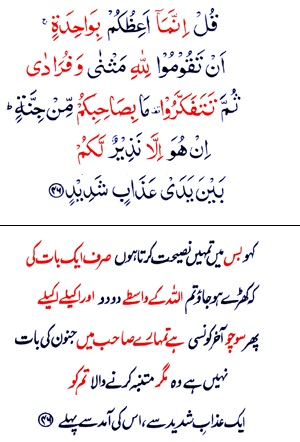 قُلْ اِنَّمَاۤ اَعِظُكُمْ بِوَاحِدَةٍ ۚ
اَنْ تَقُوْمُوْا لِلّٰهِ مَثْنٰى وَ فُرَادٰى
ثُمَّ تَتَفَكَّرُوْا ۫ مَا بِصَاحِبِكُمْ مِّنْ جِنَّةٍ ؕ
اِنْ هُوَ اِلَّا نَذِیْرٌ لَّكُمْ
بَیْنَ یَدَیْ عَذَابٍ شَدِیْدٍ ﴿۴۶﴾
کہو بس میں تمہیں نصیحت کرتا ہوں صرف ایک بات کی
کہ کھڑے ہو جاؤ تم اللہ کے واسطے دو دو اور اکیلے اکیلے
پھر سوچو آخر کونسی ہے تمہارے صاحب میں جنون کی بات
نہیں ہے وہ مگر متنبّہ کرنے والا تم کو
ایک عذابِ شدید سے، اس کی آمد سے پہلے ﴿۴۶﴾